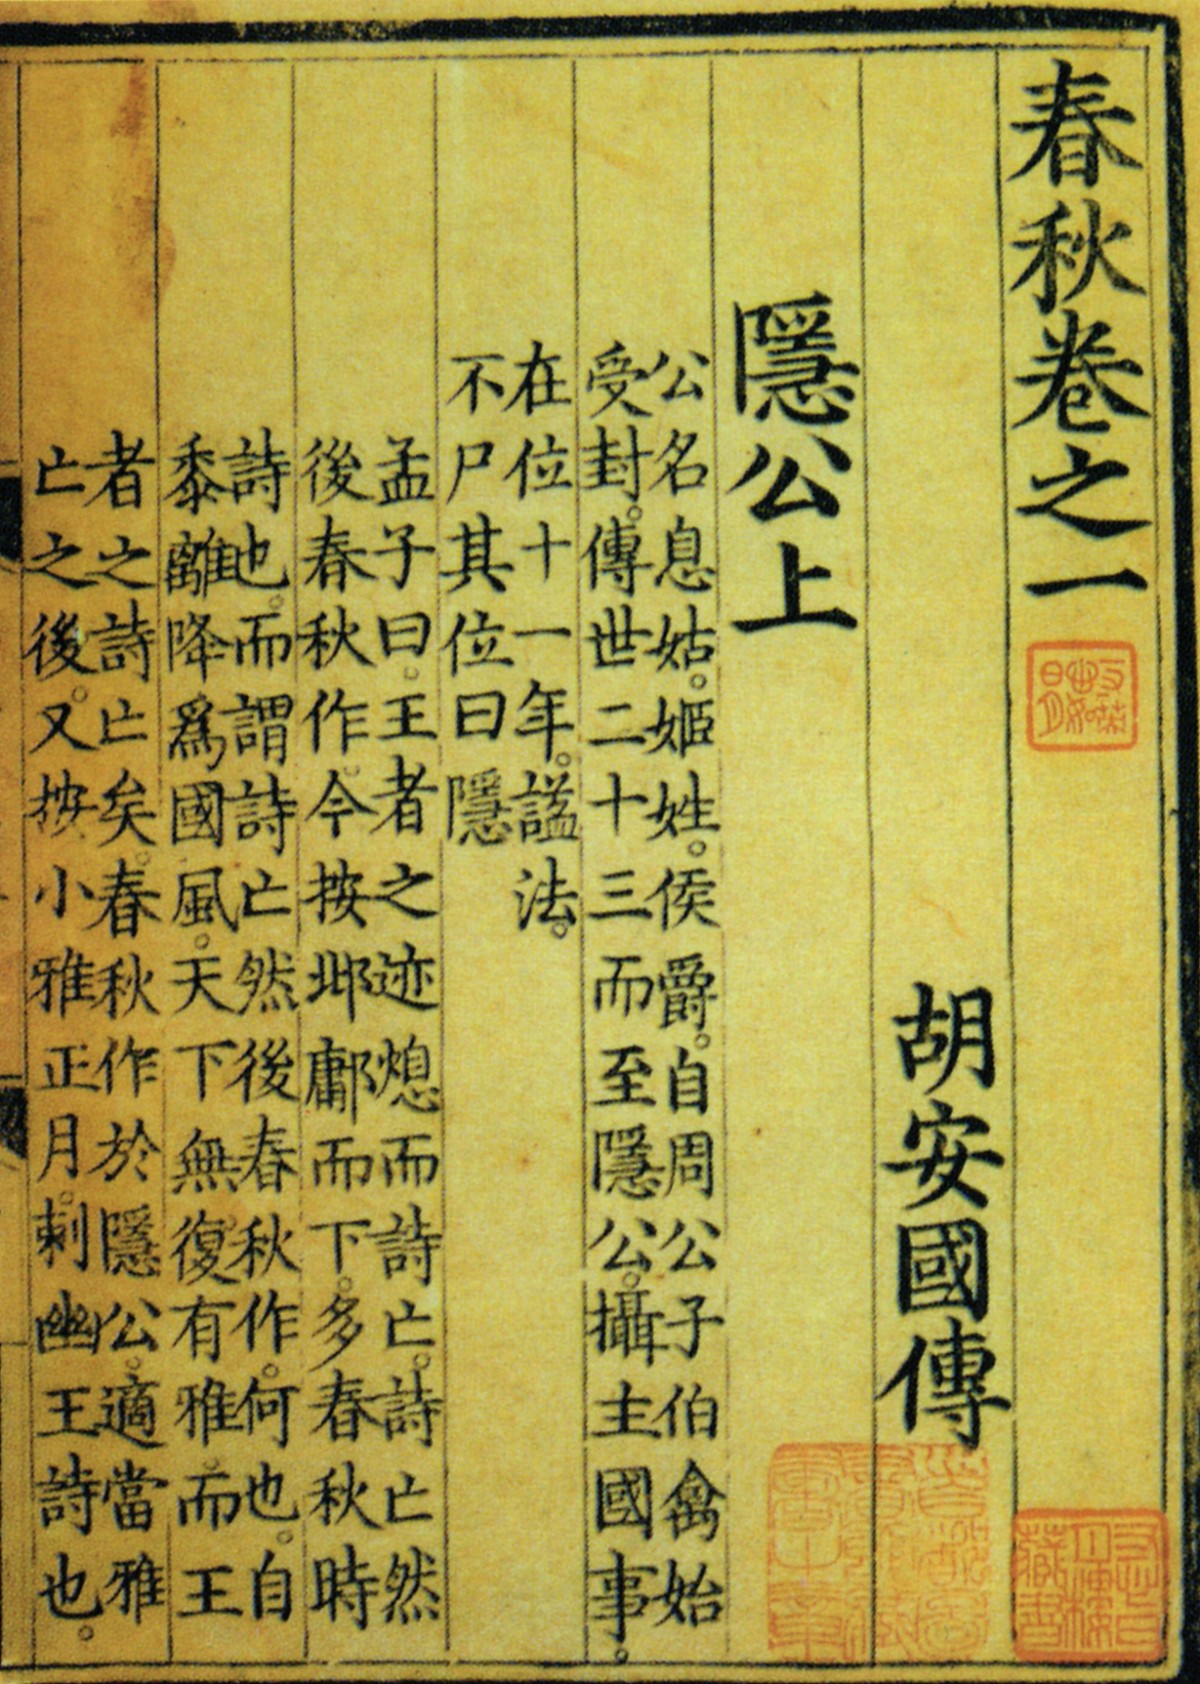 春秋卷之一
胡安國傳
隱公上
公名息姑。姬姓。侯爵。自周公子伯禽始
受封。傳世二十三而至隱公。攝主國事。
在位十一年。謚法。
不尸其位曰隱
孟子曰。王者之迹熄而詩亡。詩亡然
後春秋作。今按邶鄘而下。多春秋時
詩也。而謂詩亡然後春秋作。何也。自
黍離降爲國風。天下無復有雅。而王
者之詩亡矣。春秋作於隱公。適當雅
亡之後。又按小雅正月。刺幽王詩也。